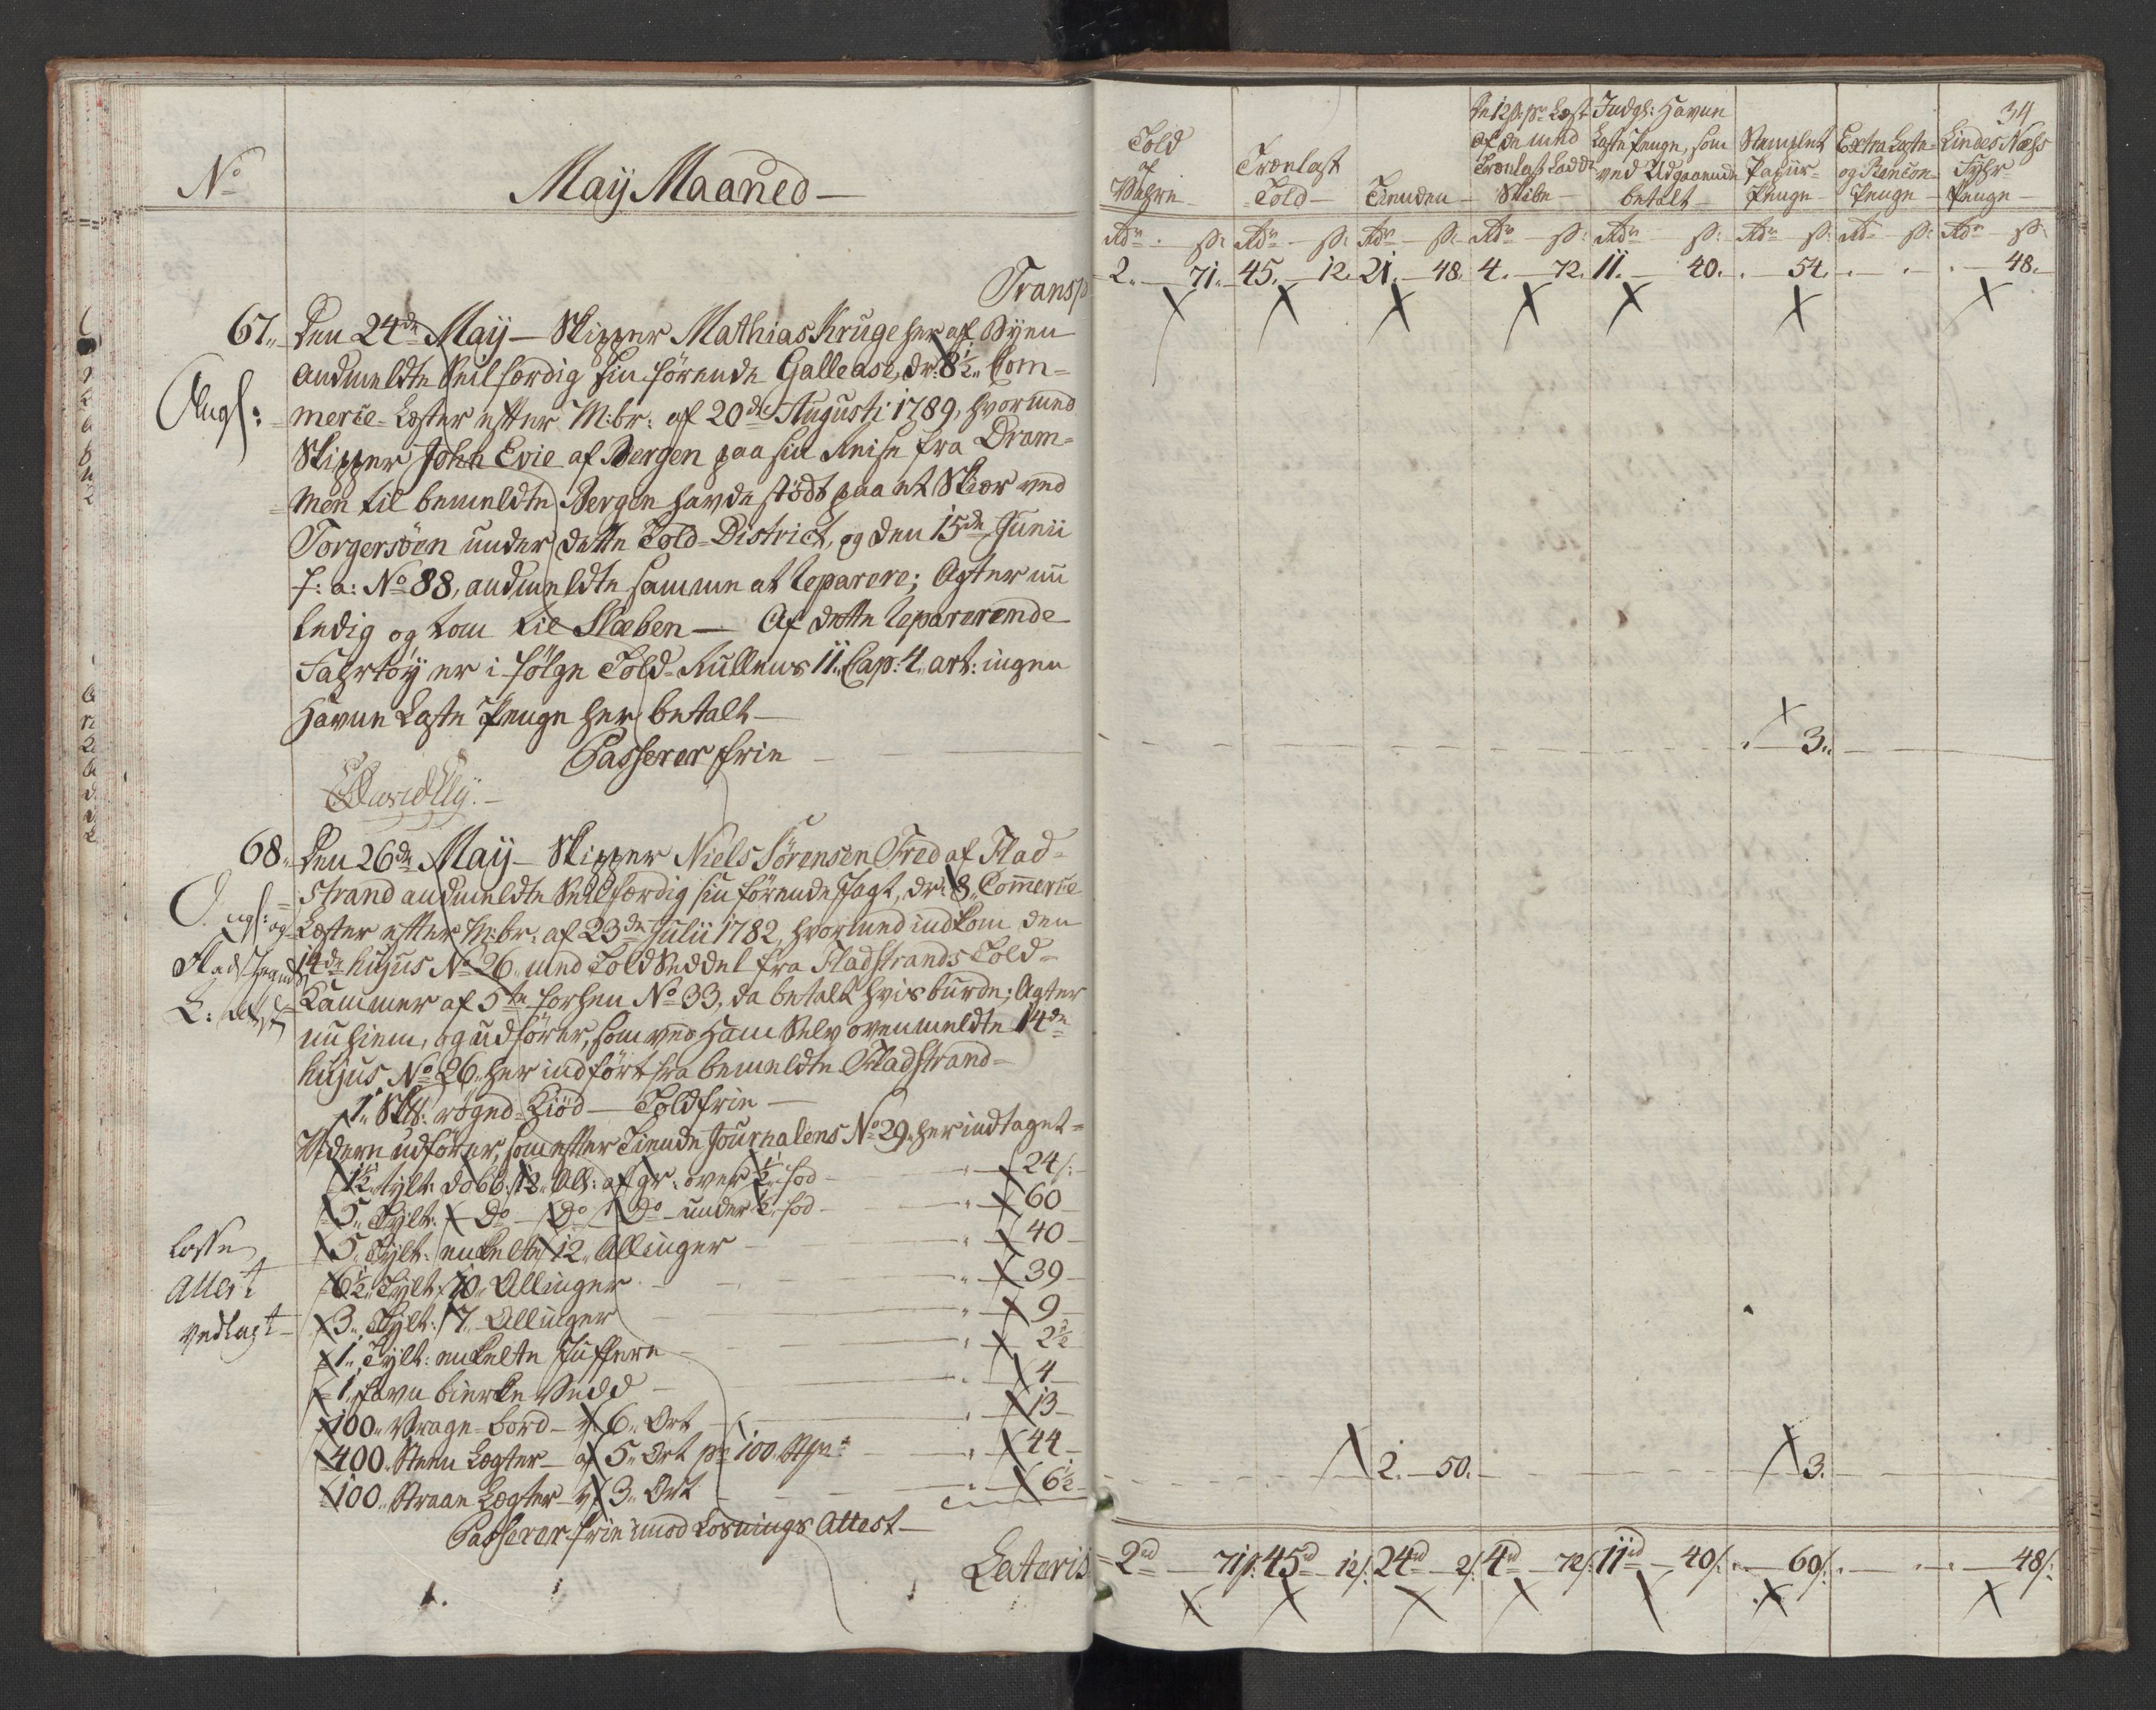 No
Maij Maaned
Transp
67. Den 24de Maij - Skipper Mathias Kruge her af Byen
andmeldte Seilfærdig sin förende Gallease, dr: 8½ Com=
merce-Læster efter M:br: af 20de Augusti 1789, hvormed
Skipper John Evie af Bergen paa sin Reise fra Dram=
men til bemeldte Bergen havde stödt paa et Skier ved
Torgersöen under dette Told-District, og den 15de Junii
f: a: No 88, andmeldte samme at reparere; Agter nu
ledig og tom til Slæben - Af dette reparerende
Fahrtöy er i fölge Told-Rullens 11. Cap: 4. art: ingen
Havne Laste Penge her betalt -
Passerer frie -
68. Den 26de Maij - Skipper Niels Sörensen Fred af Flad=
strand andmeldte Seilfærdig sin förende Jagt, dr: 8. Commerce
Læster efter M:br: af 23de Julii 1782, hvormed indkom den
14de hujus No 26. med Told Seddel fra Fladstrands Told=
Kammer af 5te forhen No 33. da betalt hvis burde; Agter
nu hiem, og udförer, som ved Ham Selv ovenmeldte 14de
hujus No 26. her indfört fra bemeldte Fladstrand=
1. Sk℔: röged-Kiöd - Toldfrie -
Videre udförer, som efter Tiende Journalens No 29. her indtaget=
1½ Tylt: dobb: 12. All: af gr: over ½ fod - 24ß:
5. Tylt: Do Do Do under ½ fod - 60
5. Tylt: enkelte 12. Allinger - 40
6½ Tylt: 10. Allinger - 39
3. Tylt: 7. Allinger - 9
1. Tylt: enkelte Juffere - 2½
1. favn bierke Vedd - 4
100. Vrage-bord - 6. Ort - 13
400. Steen Lægter - af 5. Ort pr 100. - 44
100. Straae Lægter - 3. Ort - 6½
Passerer frie imod Losnings Attest -
Lateris
Losse
Attest
vedlagt
34
Told af Vahre
Trælast Told
Tienden
De 12ß pr Læst af de med Trælast Ladde Skibe
Indgl: Havne Laste Penge, som ved Udgaaende betalt
Stemplet Papiir Penge
Extra Laste og Rancon Penge
Lindes Næss Fyhr Penge
Rdr ß: Rdr ß: Rdr ß: Rdr ß: Rdr ß: Rdr ß: Rdr ß: Rdr ß:
2. 71. 45. 12. 21. 48. 4. 72. 11. 40. 54. 48.
3.
2. 50. 3.
2rd 71ß: 45rd 12ß: 24rd 2ß: 4rd 72ß: 11rd 40ß: 60ß: 48ß: